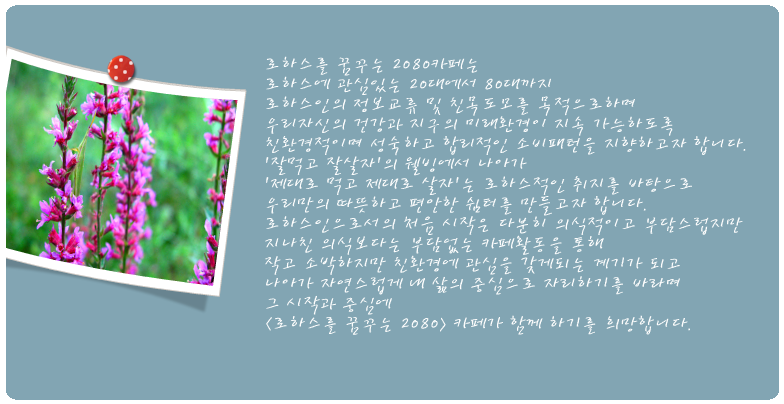 로하스를 꿈꾸는 2080카페는
로하스에 관심있는 20대에서 80대까지
로하스인의 정보교류 및 친목도모를 목적으로하며
우리자신의 건강과 지구의 미래환경이 지속 가능하도록
친환경적이며 성숙하고 합리적인 소비패턴을 지향하고자 합니다.
'잘먹고 잘살자'의 웰빙에서 나아가
'제대로 먹고 제대로 살자'는 로하스적인 취지를 바탕으로
우리만의 따뜻하고 편안한 쉼터를 만들고자 합니다.
로하스인으로서의 처음 시작은 다분히 의식적이고 부담스럽지만
지나친 의식보다는 부담없는 카페활동을 통해
작고 소박하지만 친환경에 관심을 갖게되는 계기가 되고
나아가 자연스럽게 내 삶의 중심으로 자리하기를 바라며
그 시작과 중심에
<로하스를 꿈꾸는 2080> 카페가 함께 하기를 희망합니다.